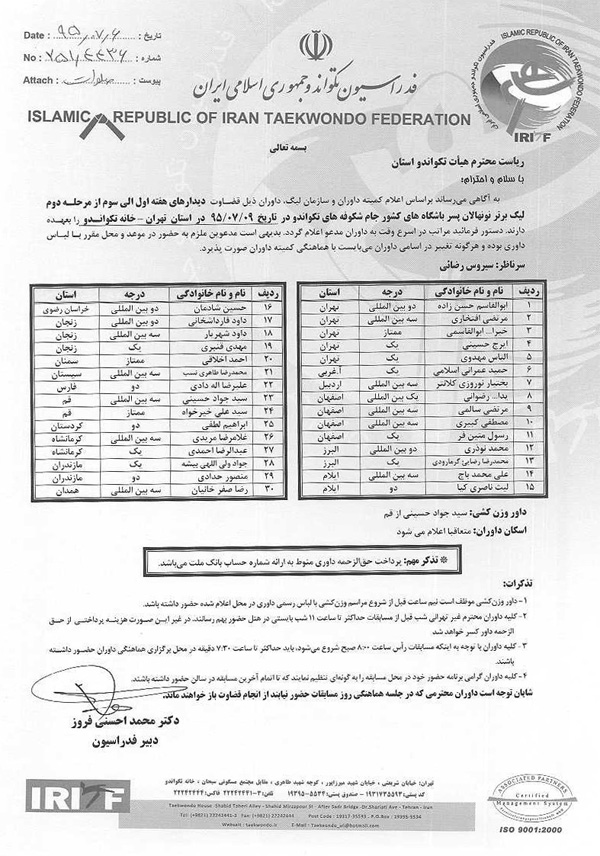 Date : ۹۵,۰۷,۰۶ تاریخ :
No : شماره :
Attach : پیوست :
فدراسیون تکواندو جمهوری اسلامی ایران
ISLAMIC REPUBLIC OF IRAN TAEKWONDO FEDERATION
ISLAMIC REPUBLIC OF IRAN TAEKWONDO FEDERATION
IRITF
بسمه تعالی
ریاست محترم هیأت تکواندو استان
با سلام و احترام؛
به آگاهی می‌رساند براساس اعلام کمیته داوران و سازمان لیگ، داوران ذیل قضاوت دیدارهای هفته اول الی سوم از مرحله دوم
لیگ برتر نونهالان پسر باشگاه های کشور جام شکوفه های تکواندو در تاریخ ۹۵/۰۷/۰۹ در استان تهران - خانه تکواندو را بعهده
دارند. دستور فرمائید مراتب در اسرع وقت به داوران مدعو اعلام گردد. بدیهی است مدعوین ملزم به حضور در موعد و محل مقرر با لباس
داوری بوده و هرگونه تغییر در اسامی داوران می‌بایست با هماهنگی کمیته داوران صورت پذیرد.
سرناظر: سیروس رضائی
ردیف نام و نام خانوادگی درجه استان
۱ ابوالقاسم حسن زاده دو بین المللی تهران
۲ مرتضی افتخاری سه بین المللی تهران
۳ خیرا... ابوالقاسمی ممتاز تهران
۴ ایرج حسینی یک تهران
۵ الناس مهدوی یک تهران
۶ حمید عمرانی اسلامی یک آ.غربی
۷ بختیار نوروزی کلانتر سه بین المللی اردبیل
۸ یدا... رضوانی یک بین المللی اصفهان
۹ مرتضی سالمی سه بین المللی اصفهان
۱۰ مصطفی کبیری سه بین المللی اصفهان
۱۱ رسول متین فر یک اصفهان
۱۲ محمد نوذری دو بین المللی البرز
۱۳ محمدرضا رضایی گرمارودی یک البرز
۱۴ علی محمد باج سه بین المللی ایلام
۱۵ لیث ناصری کیا دو ایلام
ردیف نام و نام خانوادگی درجه استان
۱۶ حسین شادمان دو بین المللی خراسان رضوی
۱۷ داود فارداشخانی دو بین المللی زنجان
۱۸ داود شهریار سه بین المللی زنجان
۱۹ مهدی قنبری یک زنجان
۲۰ احمد اخلاقی ممتاز سمنان
۲۱ محمدرضا طاهری نسب سه بین المللی سیستان
۲۲ علیرضا اله دادی دو فارس
۲۳ سید جواد حسینی سه بین المللی قم
۲۴ سید علی خیرخواه ممتاز قم
۲۵ ابراهیم لطفی دو کردستان
۲۶ غلامرضا مریدی سه بین المللی کرمانشاه
۲۷ عبدالرضا احمدی یک کرمانشاه
۲۸ جواد ولی اللهی بیشه یک مازندران
۲۹ منصور حدادی دو مازندران
۳۰ رضا صفر خانیان سه بین المللی همدان
داور وزن کشی: سید جواد حسینی از قم
اسکان داوران: متعاقبا اعلام می شود
* تذکر مهم: پرداخت حق‌الزحمه داوری منوط به ارائه شماره حساب بانک ملت می‌باشد.
تذکرات:
۱- داور وزن‌کشی موظف است نیم ساعت قبل از شروع مراسم وزن‌کشی با لباس رسمی داوری در محل اعلام شده حضور داشته باشد.
۲- کلیه داوران محترم غیر تهرانی شب قبل از مسابقات حداکثر تا ساعت ۱۱ شب بایستی در هتل حضور بهم رسانند. در غیر این صورت هزینه پرداختی از حق
الزحمه داور کسر خواهد شد
۳- کلیه داوران با توجه به اینکه مسابقات رأس ساعت ۸:۰۰ صبح شروع می‌شود، باید حداکثر تا ساعت ۷:۳۰ دقیقه در محل برگزاری هماهنگی داوران حضور داشته
باشند.
۴- کلیه داوران گرامی برنامه حضور خود در محل مسابقه را به گونه‌ای تنظیم نمایند که تا اتمام آخرین مسابقه در سالن حضور داشته باشند.
شایان توجه است داوران محترمی که در جلسه هماهنگی روز مسابقات حضور نیابند از انجام قضاوت باز خواهند ماند.
دکتر محمد احسنی فروز
دبیر فدراسیون
IRITF
تهران: خیابان شریعتی، خیابان شهید میرزاپور، کوچه شهید طاهری، مقابل مجتمع مسکونی سبحان، خانه تکواندو
کد پستی: ۱۹۳۱۷۳۵۵۹۳ - صندوق پستی: ۵۵۳۴-۱۹۳۹۵ تلفن: ۳-۲۲۲۴۲۴۴۱ فاکس: ۲۲۲۴۲۴۴۴
Taekwondo House -Shahid Taheri Alley - Shahid Mirzapour St - After Sadr Bridge -Dr.Shariati Ave - Tehran - Iran
Tel: (+9821) 22242441-2 Fax: (+9821) 22242444 Post Code : 19317-35593 P.O.BOX : 19395-5534
Website : taekwondo.ir E-Mail :
ASSOCIATED PARTNERS
Certified
Management System
ISO 9001:2000